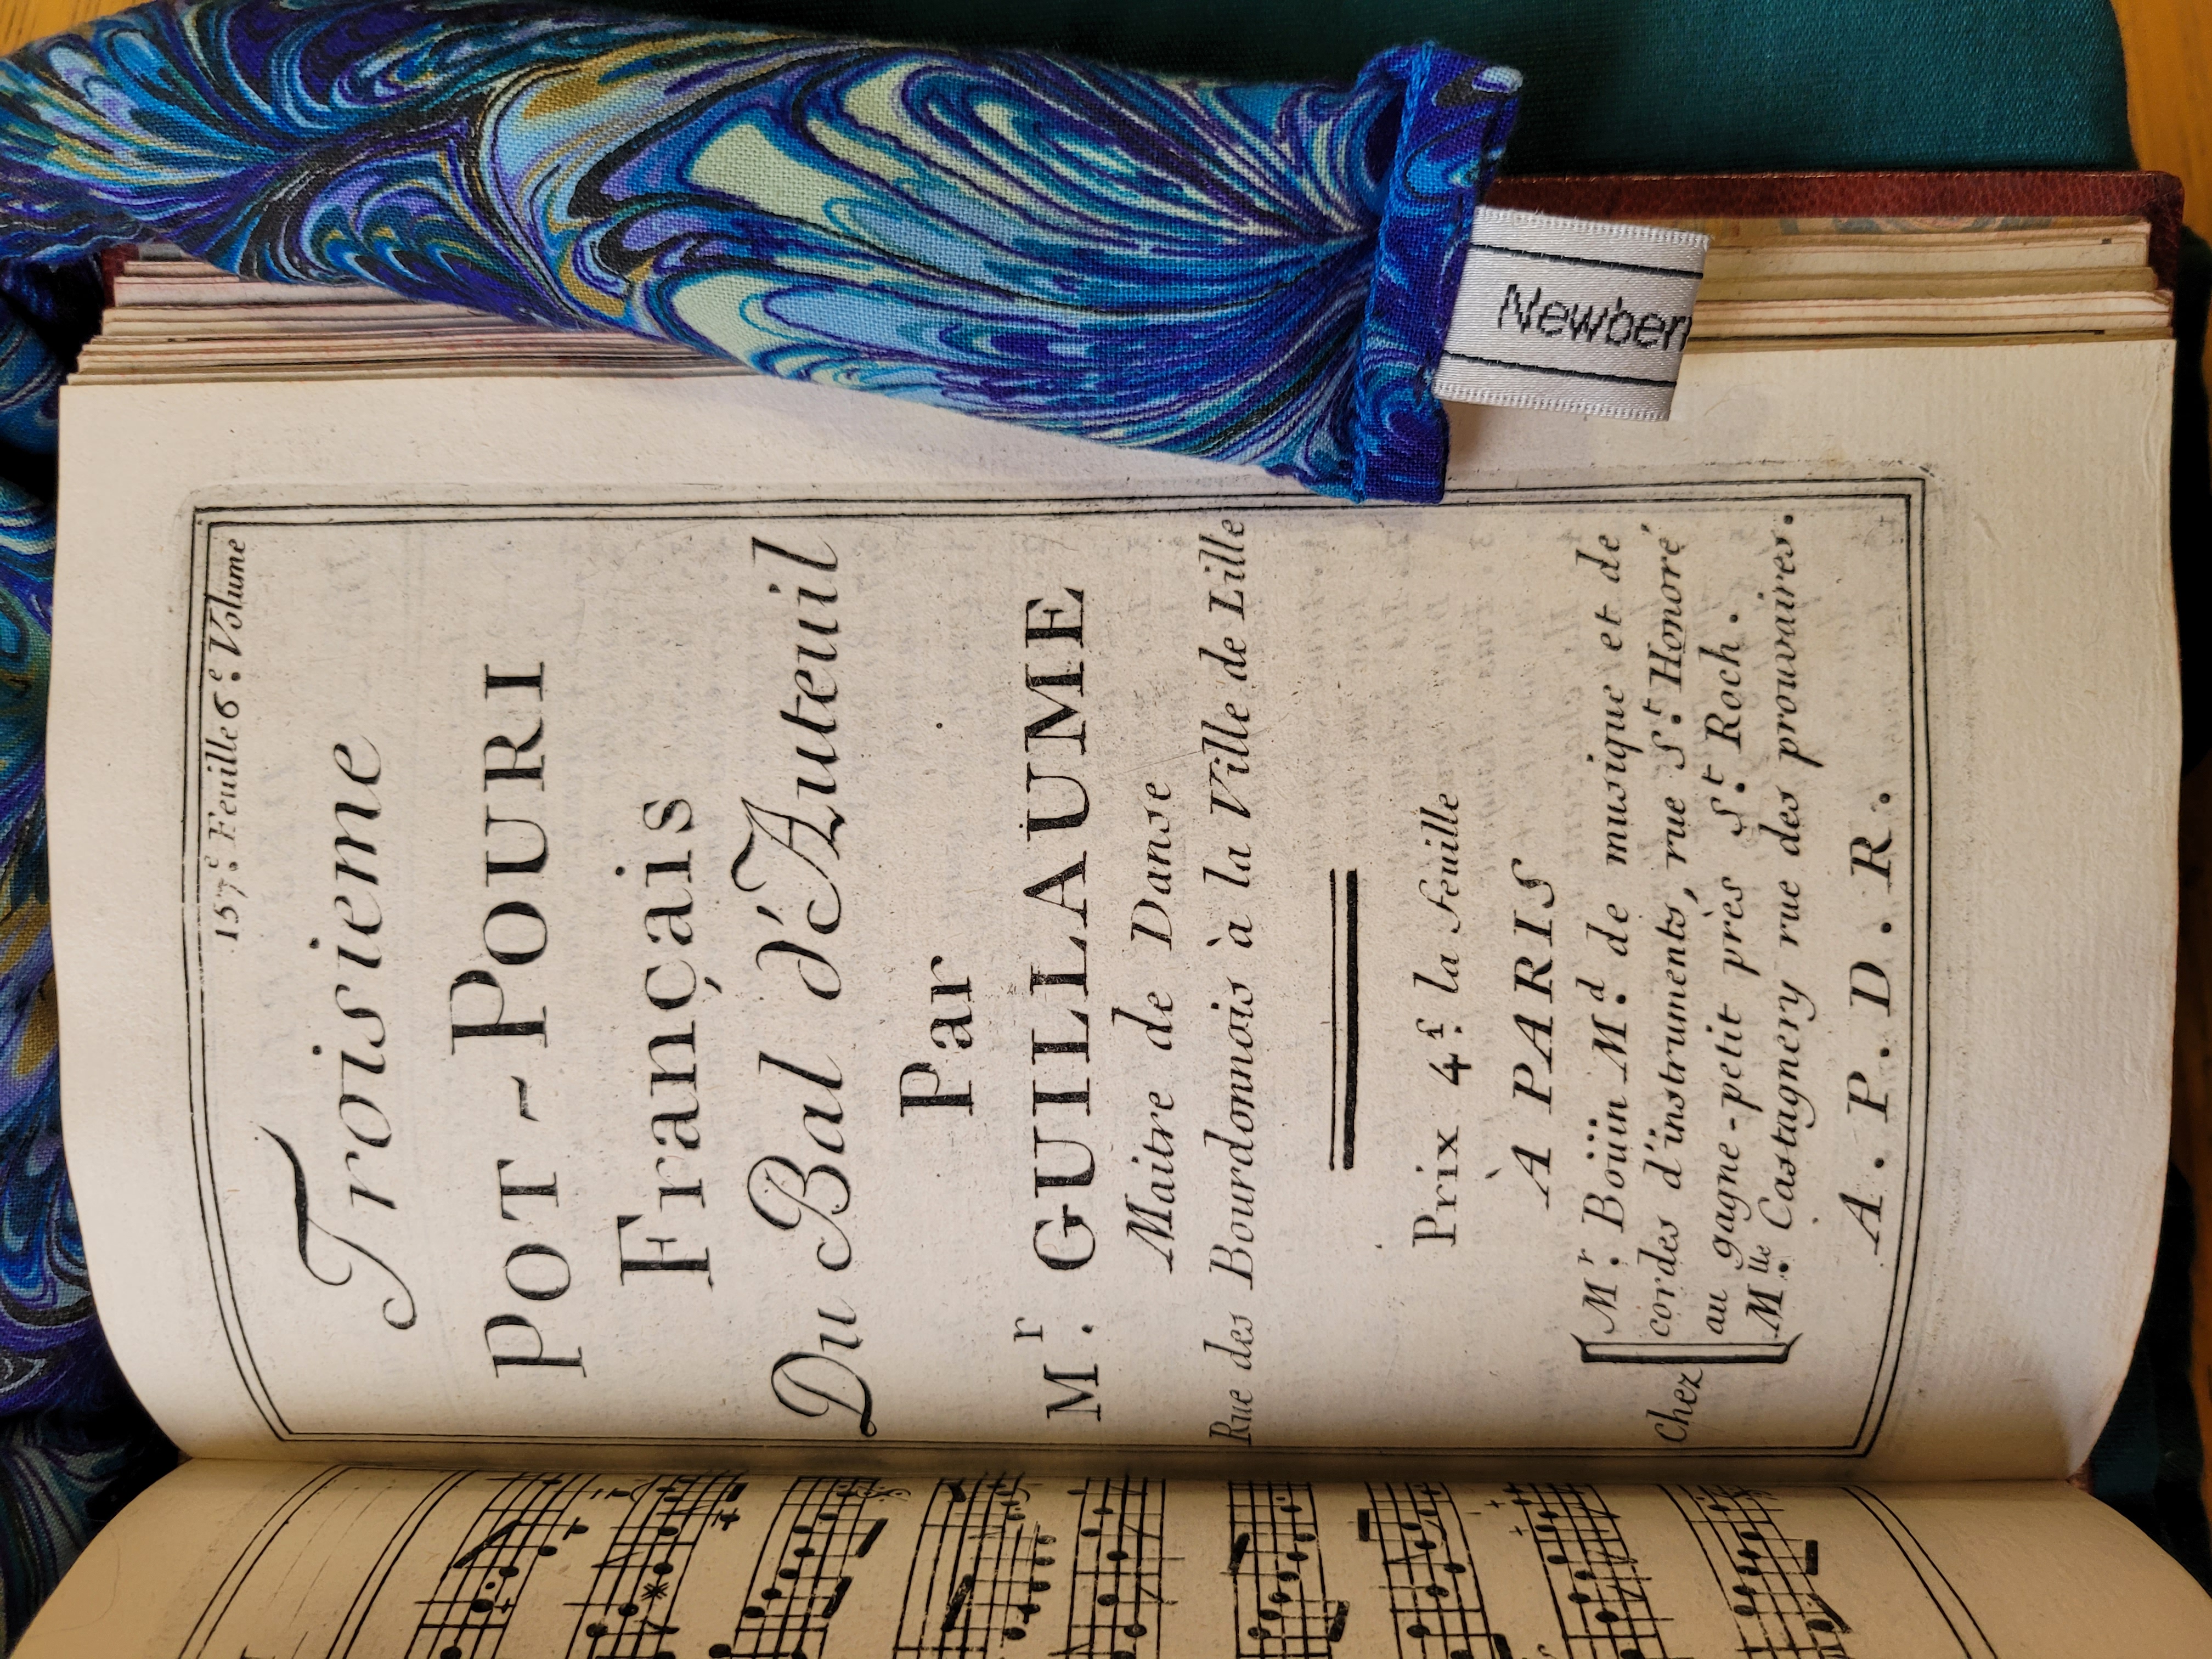 157.e Feuille 6.e Volume
Troisieme
POT-POURI
Français
Du Bal d'Auteuil
Par
M.r GUILLAUME
Maitre de Danse
Rue des Bourdonnois à la Ville de Lille
Prix 4.f la Feuille
À PARIS
Chez
M.r Boüin M.d de musique et de
cordes d'instruments, rue S.t Honoré
au gagne-petit près S.t Roch.
M.lle Castagnery rue des prouvaires.
A.P.D.R.
Newberr